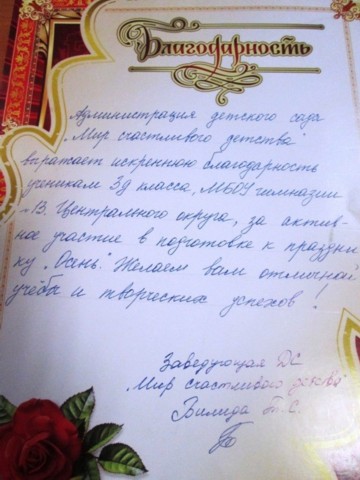 Благодарность
Администрация детского сада
„Мир счастливого детства"
выражает искреннюю благодарность
ученикам 3д класса, МБОУ гимназии
-13. Центрального округа, за актив-
ное участие в подготовке к праздни
ку „Осень". Желаем вам отличной
учёбы и творческих успехов!
Заведующая ДС
„Мир счастливого детства"